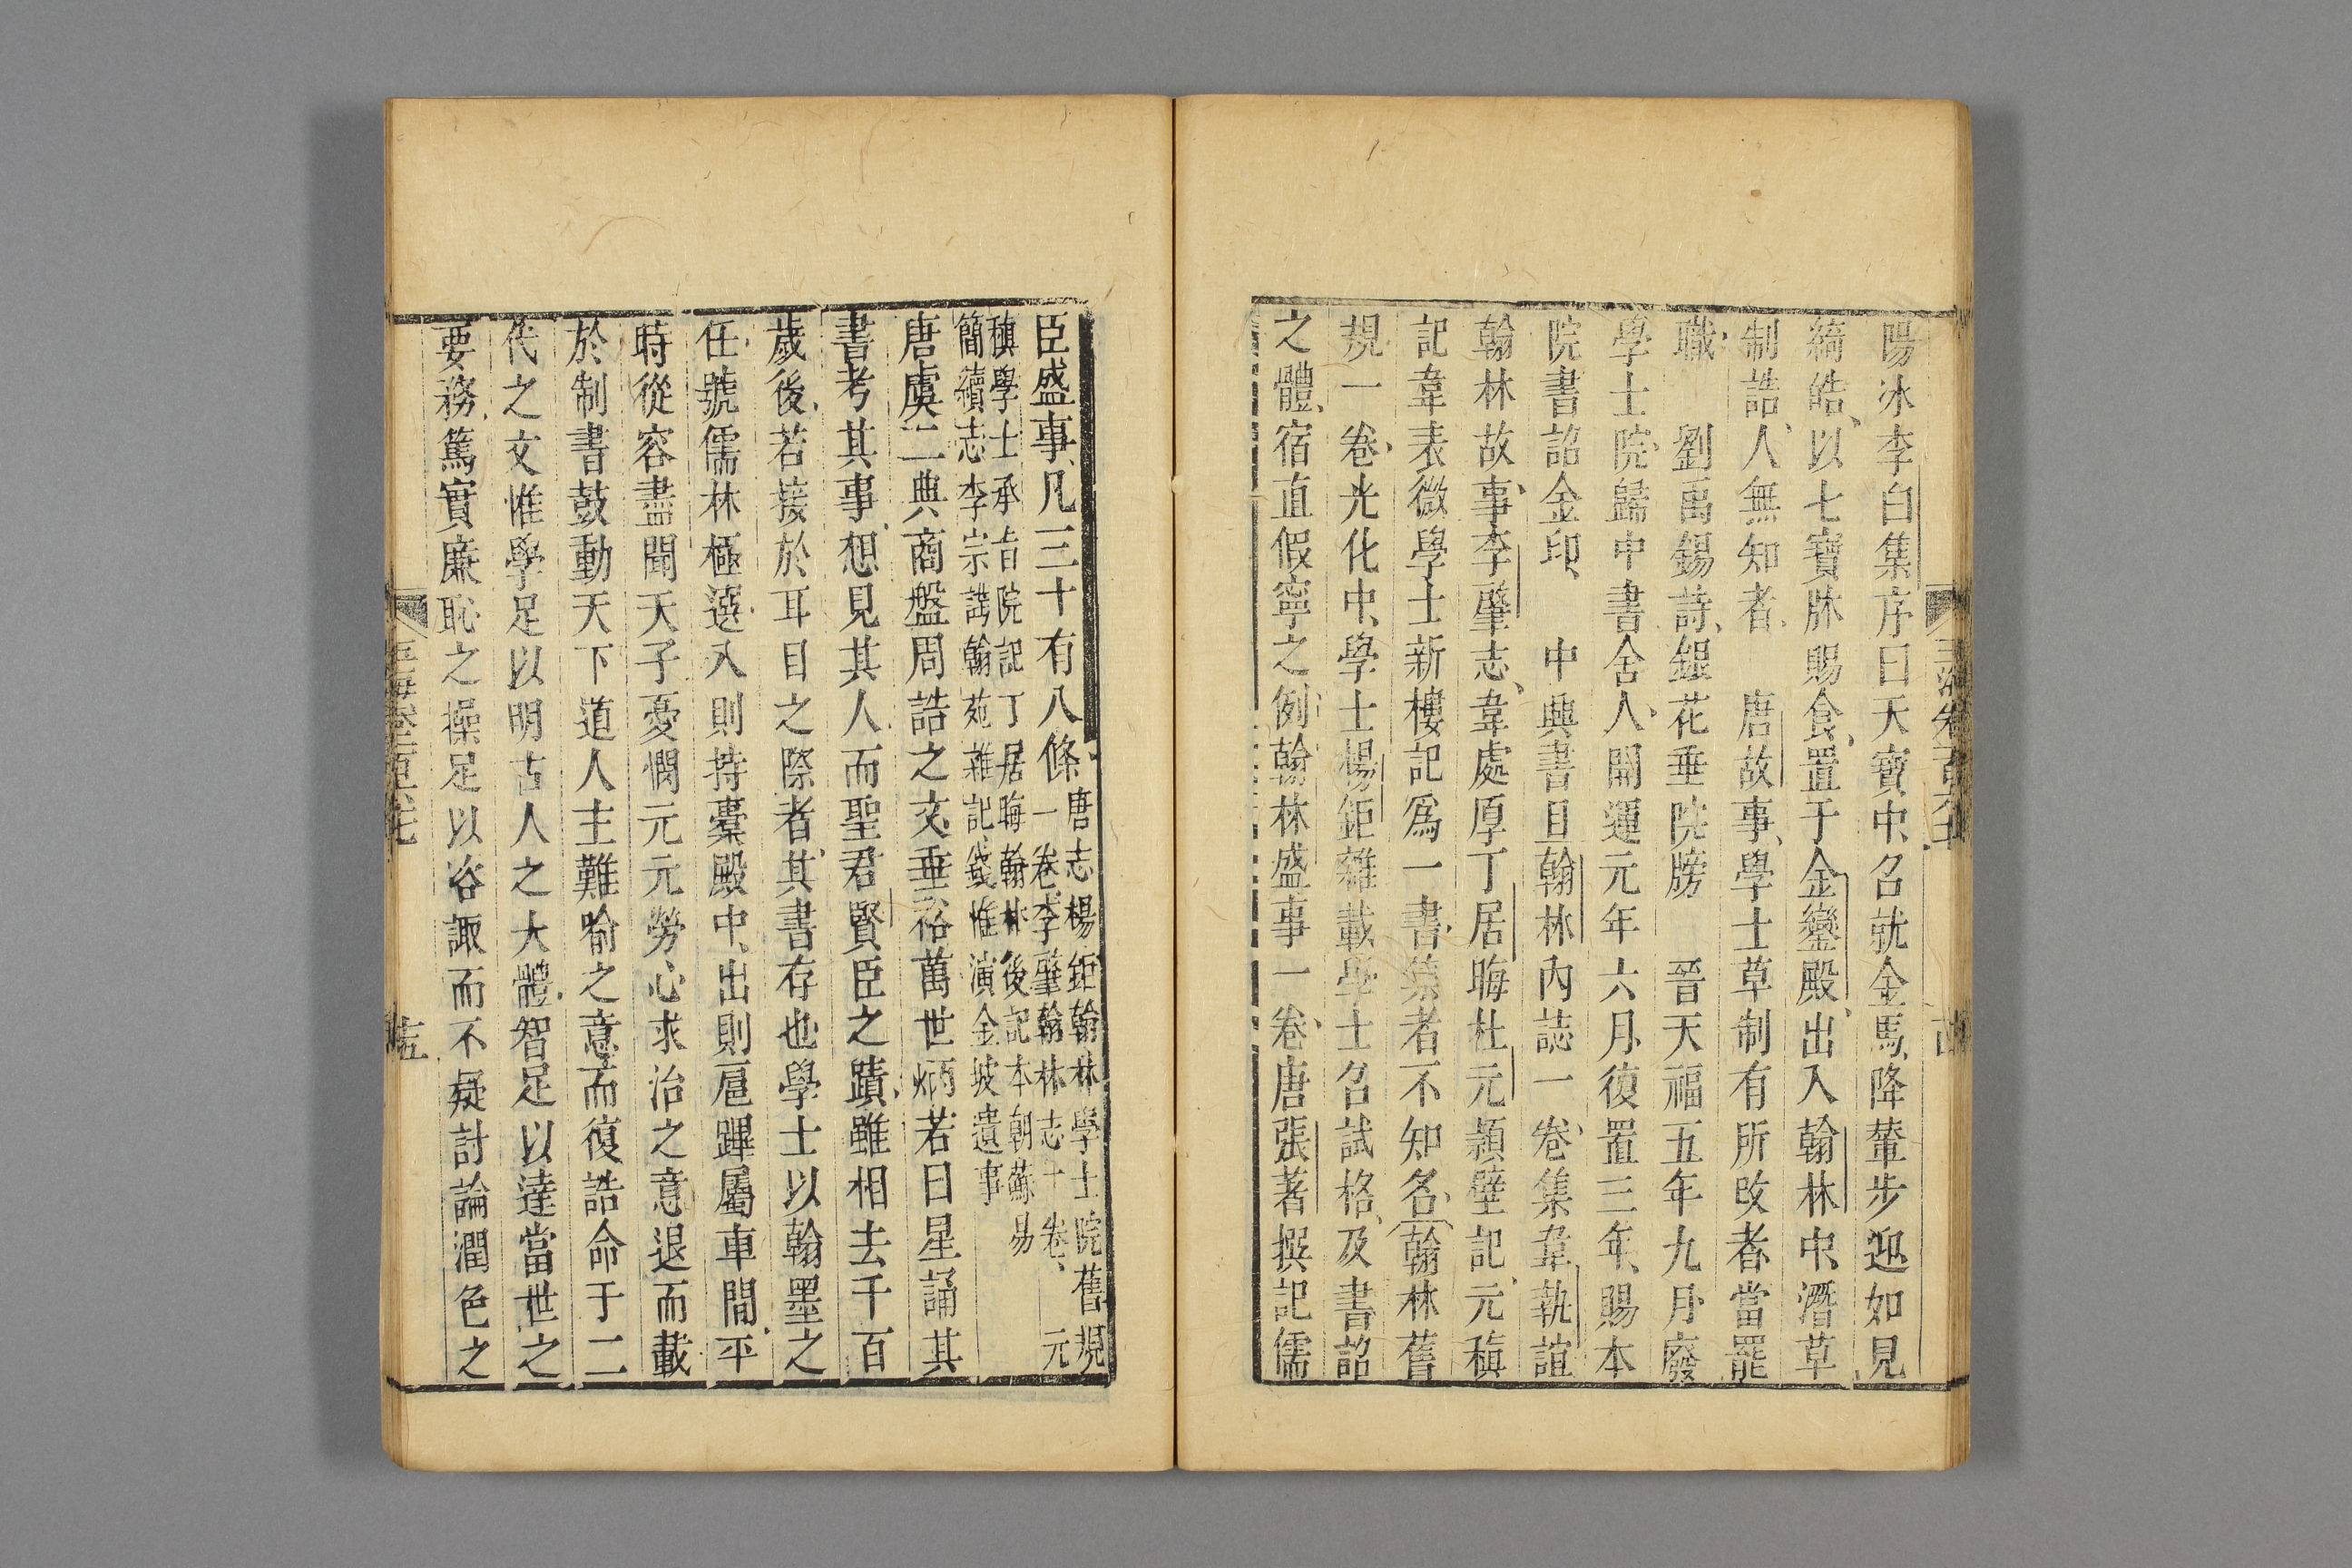 陽冰李白集序曰天寶中名就金馬降輦步迎如見
綺皓以七寶牀賜食置于金鑾殿出入翰林中潛草
制誥人無知者　唐故事學士草制有所改者當罷
職　劉禹錫詩銀花垂院牓　晉天福五年九月廢
學士院歸中書舍人開運元年六月復置三年賜本
院書詔金印　中興書目翰林內誌一卷集韋執誼
翰林故事李肇志韋處厚丁居晦杜元穎壁記元稹
記韋表微學士新樓記爲一書集者不知名翰林舊
規一卷光化中學士楊鉅雜載學士名試格及書詔
之體宿直假寧之例翰林盛事一卷唐張著撰記儒
臣盛事凡三十有八條
唐志楊鉅翰林學士院舊規
一卷李肇翰林志一卷　元
稹學士承旨院記丁居晦翰林後記本朝蘇易
簡續志李宗諤翰苑雜記錢惟演金坡遺事
唐虞二典商盤周誥之文垂裕萬世炳若日星誦其
書考其事想見其人而聖君賢臣之蹟雖相去千百
歲後若接於耳目之際者其書存也學士以翰墨之
任號儒林極選入則持橐殿中出則扈蹕屬車間平
時從容盡聞天子憂憫元元勞心求治之意退而載
於制書鼓動天下道人主難喻之意而復誥命于二
代之文惟學足以明古人之大體智足以達當世之
要務篤實廉恥之操足以咨諏而不疑討論潤色之
玉海卷一百六十七
十五